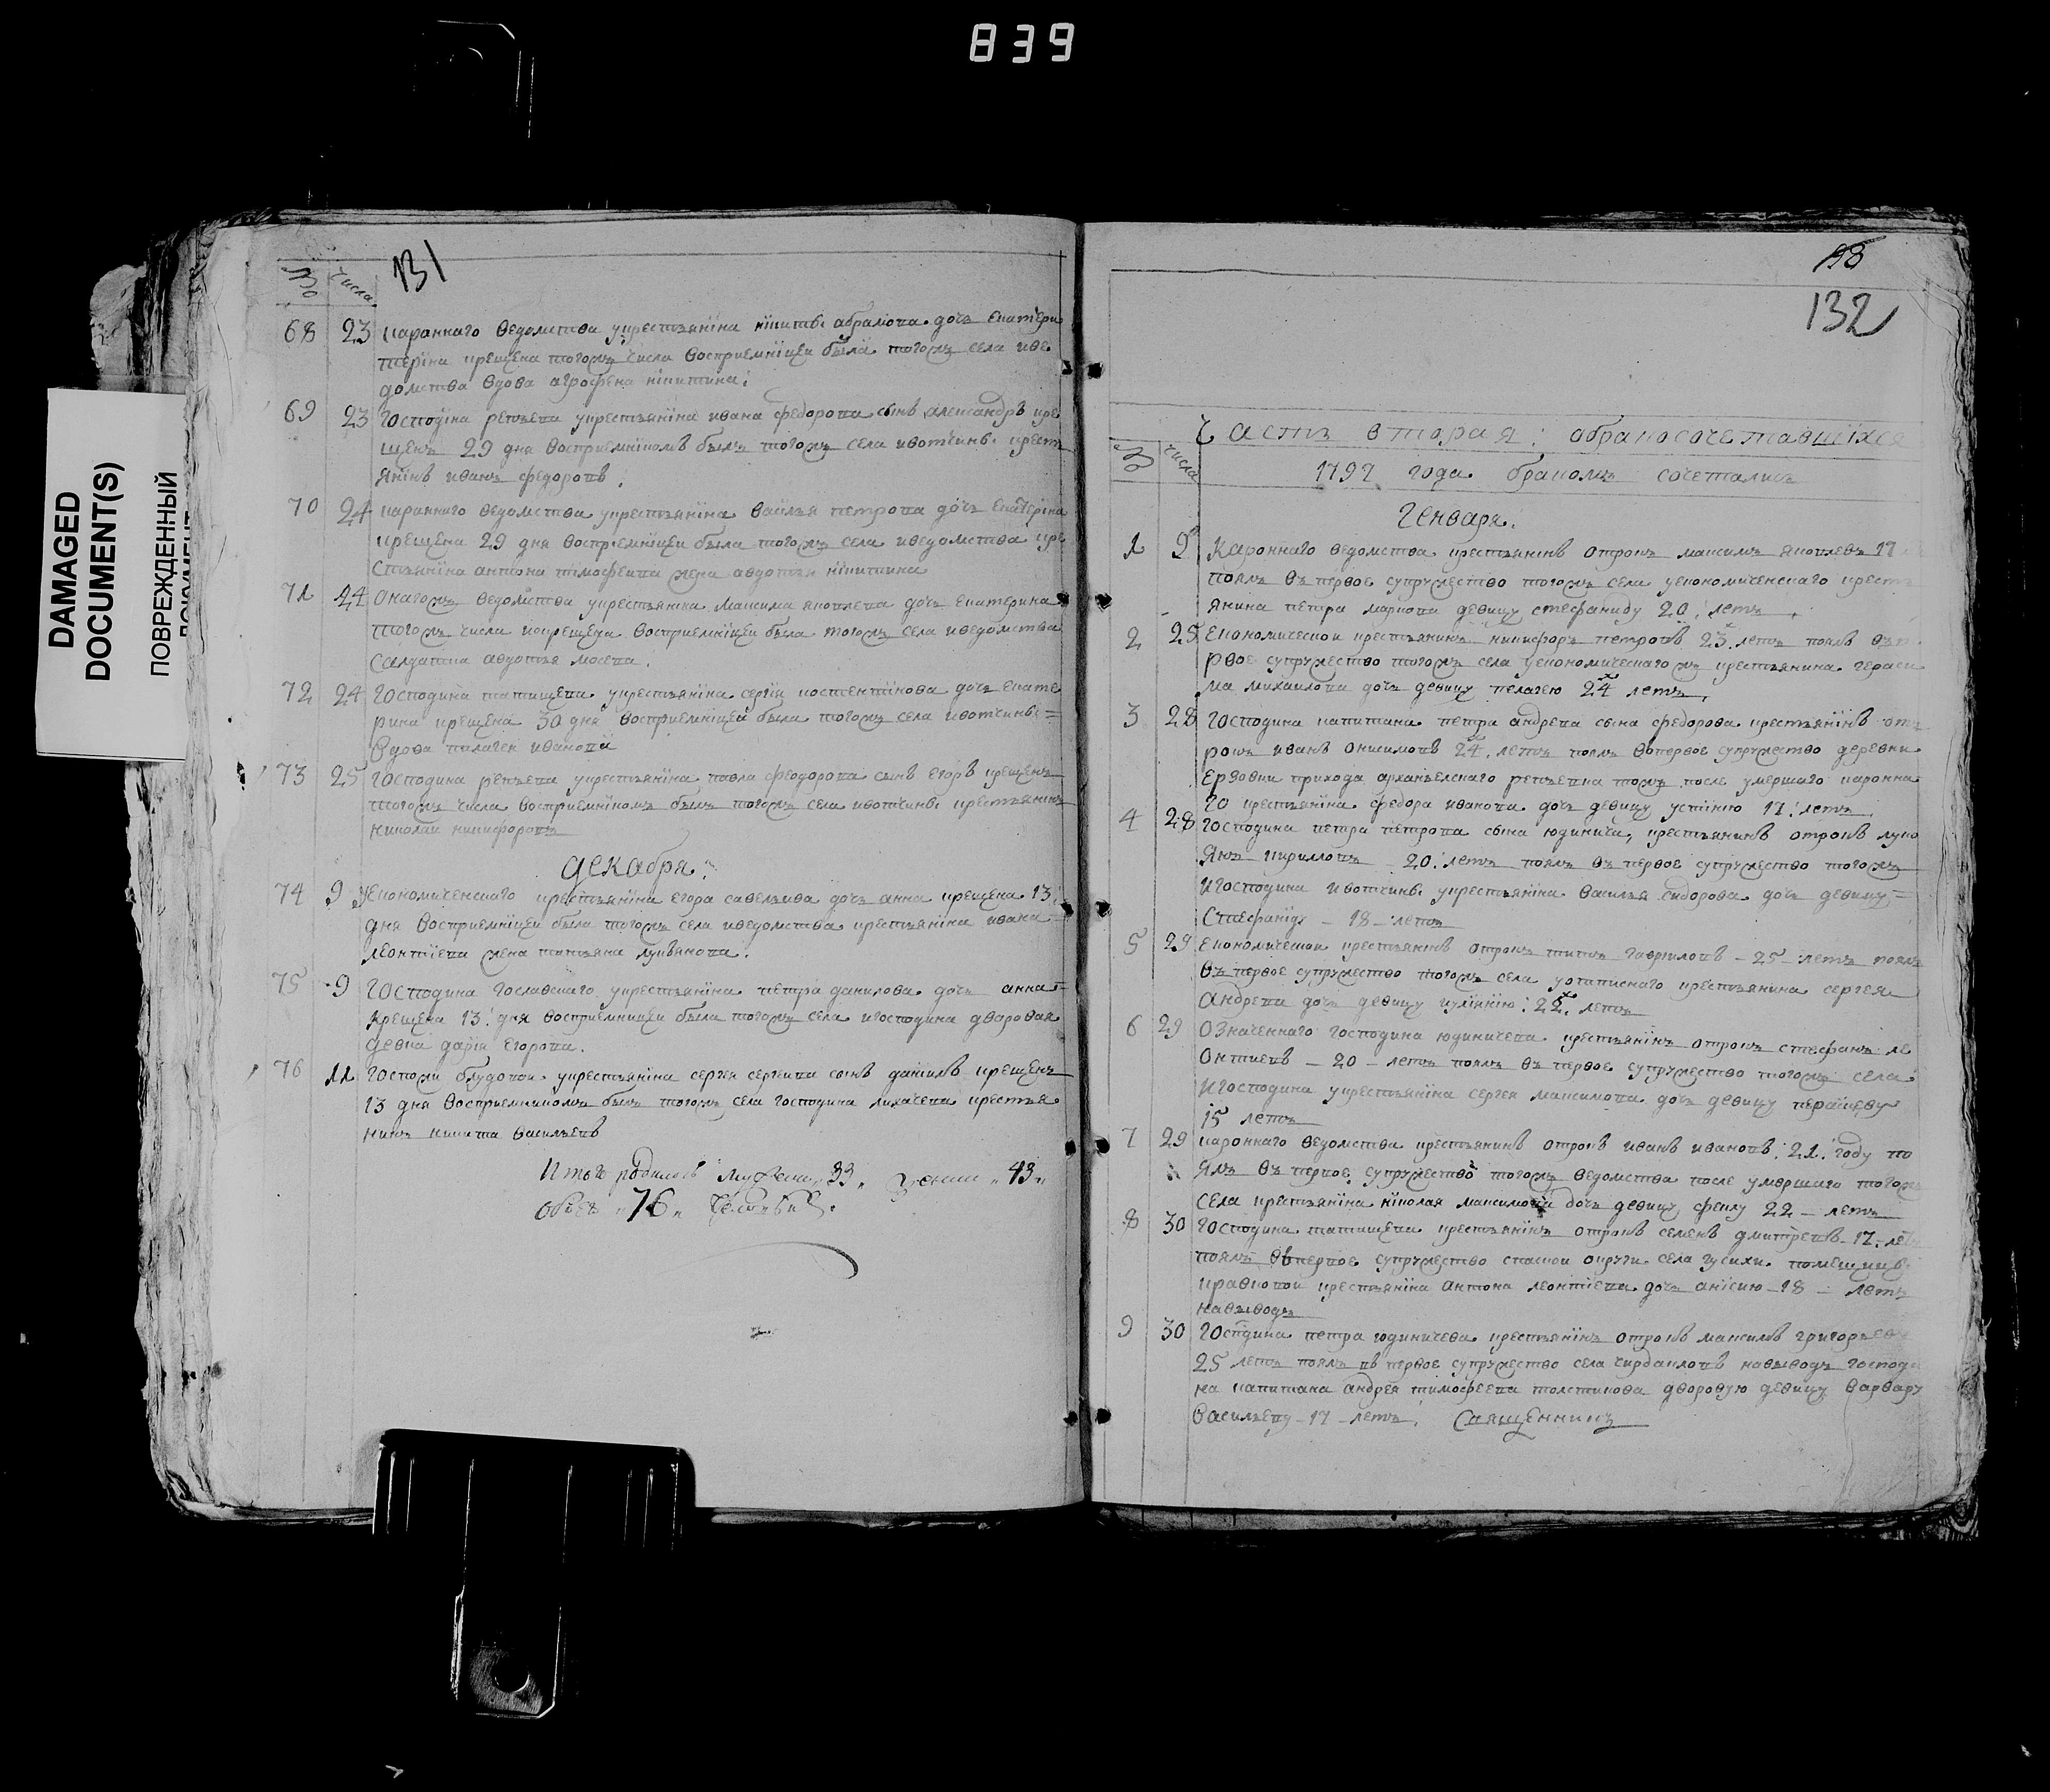 839
DAMAGED
DOCUMENT(S)
ПОВРЕЖДЕННЫЙ
№
числа
131
68 23 караннаго ведомства укрестьянїна нїкиты абрамова дочь екатери
терїна крещена тогожъ числа восприемнїцеи была тогожъ села иве
домства вдова агрофена нїкитина
69 23 господїна репьева укрестьянїна ивана федорова сынъ александръ кре
щенъ 29 дня восприемнїкомъ былъ тогожъ села ивотчины крест
янїнъ иванъ федоровъ
70 24 караннаго ведомства укрестьянїна василья петрова дочь екатерїна
крещена 29 дня восприемнїцеи была тогожъ села иведомства кре
стьянїна антона тимофеива жена авдотья нїкитина
71 24 онагожъ ведомства укрестьянина максима яковлева дочь екатерина
тогожъ числа икрещена восприемнїцеи была тогожъ села иведомства
салдатка авдотья мосева
72 24 господина татищева укрестьянїна сергїя костентїнова дочь екате
рина крещена 30 дня восприемнїцеи была тогожъ села ивотчины
вдова пилагея иванова
73 25 господина репьева укрестьянїна павла феодорова сынъ егоръ крещенъ
тогожъ числа восприемнїкомъ былъ тогожъ села ивотчины крестьянинъ
николаи никифоровъ
декабря
74 9 уекономическаго крестьянїна егора савельива дочь анна крещена 13
дня восприемнїцеи была тогожъ села иведомства крестьянїна ивана
леонтїева жена татьяна лукьянова
75 9 господина гославскаго укрестьянїна петра данилова дочь анна
крещена 13 дня восприемницеи была тогожъ села игосподина дворовая
девка дарїя егорова
76 11 госпожи блудовои укрестьянїна сергея сергеива сынъ данїилъ крещенъ
13 дня восприемникомъ былъ тогожъ села господина лихачева крестья
нинъ никита васильевъ
Итого родилось мужеска 33 женска 43
обоего 76 человекъ
132
Часть вторая: обракосочетавшїхся
№
числа
1797 года бракомъ сочетались
Генваря
1 9 Кароннаго ведомства крестьянинъ отрокъ максимъ яковлевъ 17
поялъ въ первое супружество тогожъ села уекономическаго крест
янина петра маркова девицу стефаниду 20 летъ
2 25 Економическои крестьянинъ никифоръ петровъ 23 летъ поялъ въ пе
рвое супружество тогожъ села уекономическагожъ крестьянина гераси
ма михаилова дочь девицу пелагею 24 летъ
3 28 господина капитана петра андреева сына федорова крестьянїнъ от
рокъ иванъ онисимовъ 24 летъ поялъ вопервое супружество деревни
Ерзовки прихода архангелскаго репьевка тожъ после умершаго каронна
го крестьянїна федора иванова дочь девицу устїнию 17 летъ
4 28 господина петра петрова сына юдинича, крестьянинъ отрокъ лукo
янъ кириловъ 20 летъ поялъ въ первое супружество тогожъ
игосподина ивотчины укрестьянїна василья сидорова дочь девицу
Стефаниду 18 летъ
5 29 економическои крестьянинъ отрокъ титъ гавриловъ 25 летъ поялъ
въ первое супружество тогожъ села крестьянина сергея
андреева дочь девицу иулїянїю 22 летъ
6 29 означеннаго господина юдиничева крестьянїнъ отрокъ стефанъ ле
онтиевъ 20 летъ поялъ въ первое супружество тогожъ села
игосподина укрестьянїна сергея максимова дочь девицу
15 летъ
7 29 кароннаго ведомства крестьянинъ отрокъ иванъ ивановъ 21 году по
ялъ въ первое супружество тогожъ ведомства после умершаго тогожъ
села крестьянїна нїколая максимова дочь девицу феклу 22 летъ
8 30 господина татищева крестьянїнъ отрокъ семенъ дмитревъ 17 летъ
поялъ въ первое супружество спаскои округи села гусихи помещицы
крестьянїна антона леонтїева дочь анїсию 18 летъ
навыводъ
9 30 господина петра юдиничева крестьянїнъ отрокъ максимъ григорьевъ
25 летъ поялъ въ первое супружество села навыводъ господи
на капитана андрея тимофеева толстикова дворовую девицу варвару
васильеву 17 летъ Священникъ